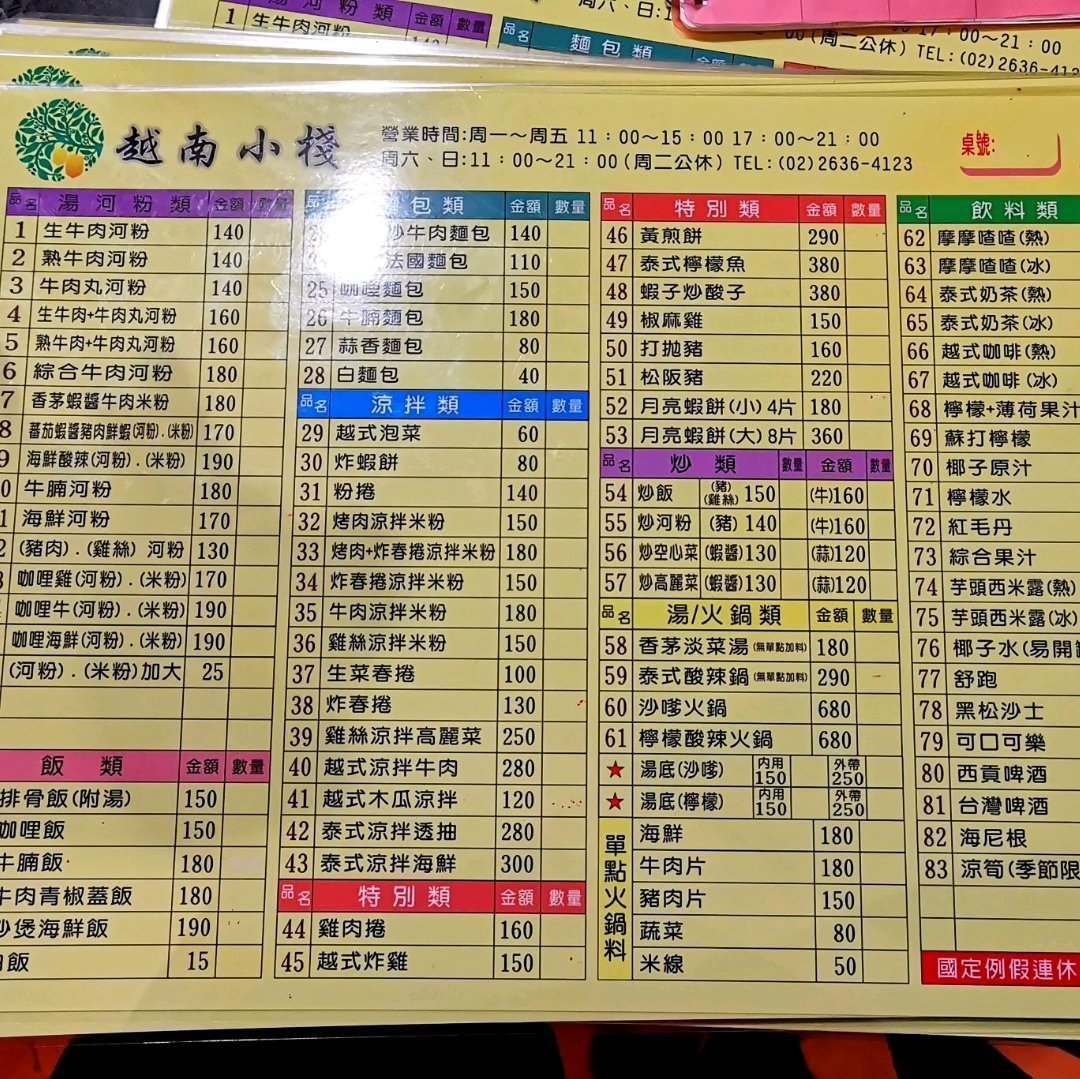 湯河粉類 金額 數量
1 生牛肉河粉 140
品名 麵包類 金額
周六、日:1
17:00～21:00
00(周二公休) TEL:(02)2636-412
越南小棧
營業時間:周一～周五 11:00～15:00 17:00～21:00
周六、日:11:00～21:00(周二公休) TEL:(02)2636-4123
桌號:
品名 湯河粉類 金額 數量
1 生牛肉河粉 140
2 熟牛肉河粉 140
3 牛肉丸河粉 140
4 生牛肉+牛肉丸河粉 160
5 熟牛肉+牛肉丸河粉 160
6 綜合牛肉河粉 180
7 香茅蝦醬牛肉米粉 180
8 蕃茄蝦醬豬肉鮮蝦(河粉).(米粉) 170
9 海鮮酸辣(河粉).(米粉) 190
0 牛腩河粉 180
1 海鮮河粉 170
2 (豬肉).(雞絲) 河粉 130
咖哩雞(河粉).(米粉) 170
咖哩牛(河粉).(米粉) 190
咖哩海鮮(河粉).(米粉) 190
(河粉).(米粉)加大 25
飯類 金額 數量
排骨飯(附湯) 150
咖哩飯 150
牛腩飯 180
牛肉青椒蓋飯 180
煲海鮮飯 190
飯 15
品 包類 金額 數量
炒牛肉麵包 140
法國麵包 110
25 咖哩麵包 150
26 牛腩麵包 180
27 蒜香麵包 80
28 白麵包 40
品名 涼拌類 金額 數量
29 越式泡菜 60
30 炸蝦餅 80
31 粉捲 140
32 烤肉涼拌米粉 150
33 烤肉+炸春捲涼拌米粉 180
34 炸春捲涼拌米粉 150
35 牛肉涼拌米粉 180
36 雞絲涼拌米粉 150
37 生菜春捲 100
38 炸春捲 130
39 雞絲涼拌高麗菜 250
40 越式涼拌牛肉 280
41 越式木瓜涼拌 120
42 泰式涼拌透抽 280
43 泰式涼拌海鮮 300
品名 特別類 金額 數量
44 雞肉捲 160
45 越式炸雞 150
品名 特別類 金額 數量
46 黃煎餅 290
47 泰式檸檬魚 380
48 蝦子炒酸子 380
49 椒麻雞 150
50 打拋豬 160
51 松阪豬 220
52 月亮蝦餅(小) 4片 180
53 月亮蝦餅(大) 8片 360
品名 炒類 數量 金額 數量
54 炒飯 (豬)(雞絲) 150 (牛)160
55 炒河粉 (豬) 140 (牛)160
56 炒空心菜 (蝦醬)130 (蒜)120
57 炒高麗菜 (蝦醬)130 (蒜)120
品名 湯/火鍋類 金額 數量
58 香茅淡菜湯(無單點加料) 180
59 泰式酸辣鍋(無單點加料) 290
60 沙嗲火鍋 680
61 檸檬酸辣火鍋 680
★ 湯底(沙嗲) 內用150 外帶250
★ 湯底(檸檬) 內用150 外帶250
單點火鍋料
海鮮 180
牛肉片 180
豬肉片 150
蔬菜 80
米線 50
品名 飲料類
62 摩摩喳喳(熱)
63 摩摩喳喳(冰)
64 泰式奶茶(熱)
65 泰式奶茶(冰)
66 越式咖啡(熱)
67 越式咖啡(冰)
68 檸檬+薄荷果汁
69 蘇打檸檬
70 椰子原汁
71 檸檬水
72 紅毛丹
73 綜合果汁
74 芋頭西米露(熱)
75 芋頭西米露(冰)
76 椰子水(易開
77 舒跑
78 黑松沙士
79 可口可樂
80 西貢啤酒
81 台灣啤酒
82 海尼根
83 涼筍(季節限
國定例假連休